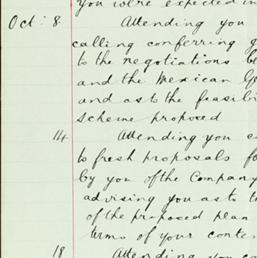 you were expected in
Oct: 8 Attending you
calling conferring
to the negotiations
and the Mexican
and as to the feasibi
scheme proposed
14 Attending you
to fresh proposals
by you of the Company
advising you as to
of the proposed plan
terms of your
18 Attending you